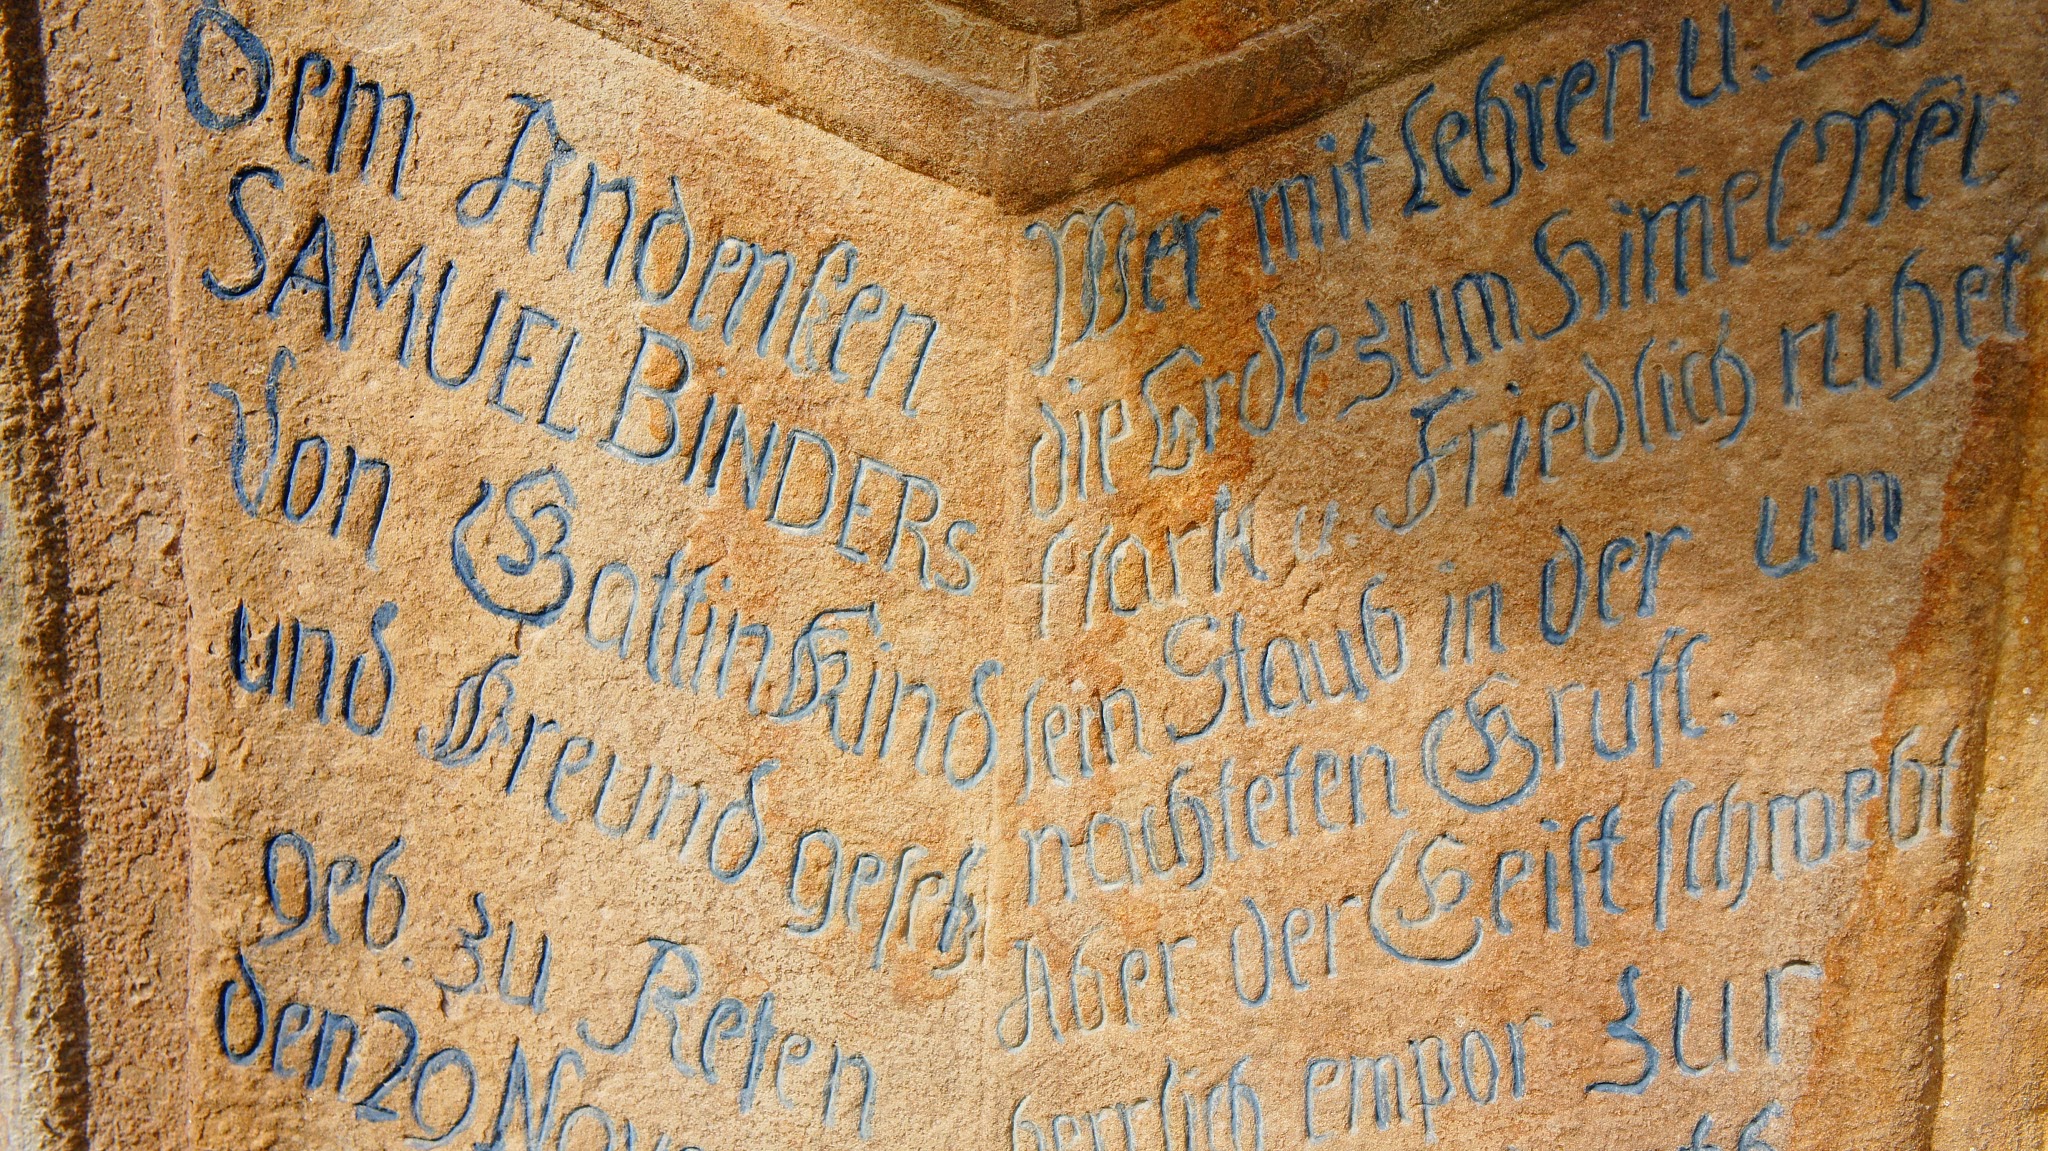 Dem Andenken
SAMUEL BINDERS
Von Gattin Kind
und Freund geseh
geb. zu Reten
den 20 Nov
Wer mit Lehren u.
die Erde zum Himel. Wer
stark u. Friedlich ruhet
sein Staub in der um
nachteten Gruft.
Aber der Geist schwebt
herrlich empor zur